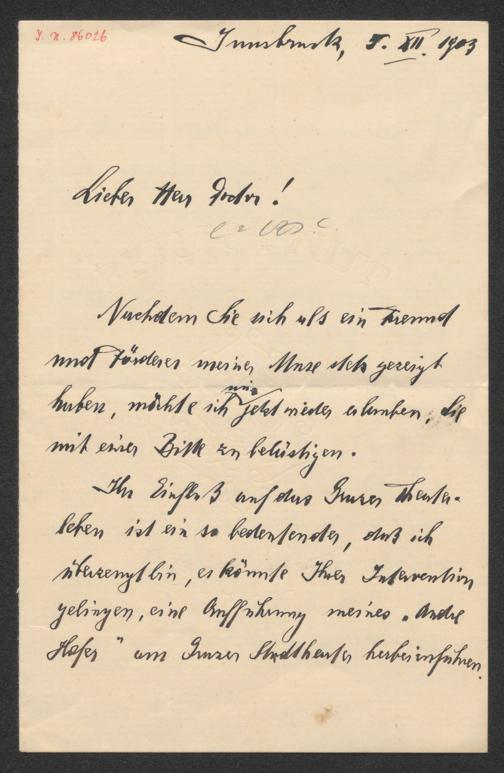 J. N. 86026
Innsbruck, 5. XII. 1903
Lieber Herr Doctor!
Nachdem Sie sich als ein Freund
und Förderer meiner Muse stets gezeigt
haben, möchte ich mir jetzt wieder erlauben, Sie
mit einer Bitte zu belästigen.
Ihr Einfluß auf das Grazer Theater-
leben ist ein so bedeutender, daß ich
überzeugt bin, es könnte Ihrer Intervention
gelingen, eine Aufführung meines „Andre
Hofer" am Grazer Stadttheater herbeizuführen.